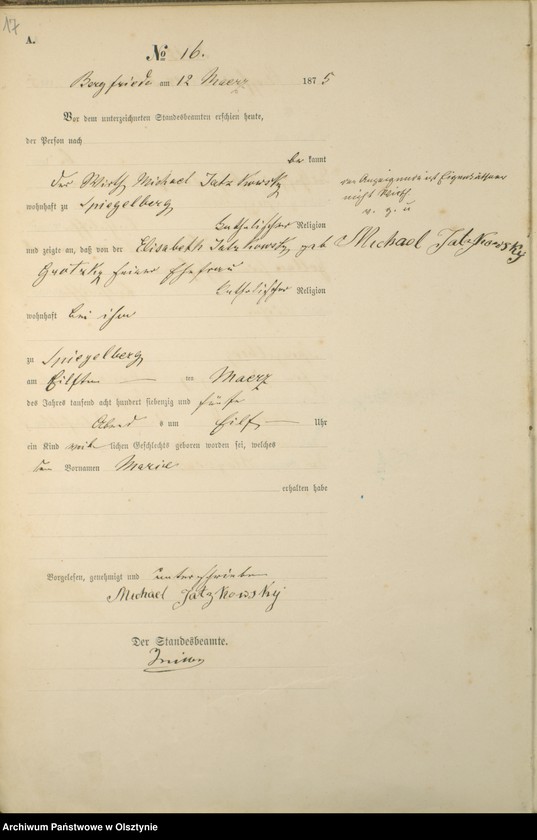 17
A.
No 16.
Bergfriede am 12 Maerz 1875
Vor dem unterzeichneten Standesbeamten erschien heute,
der Person nach
be kannt
der Wirth Michael Jatzkowsky
wohnhaft zu Spiegelberg
katholischer Religion
und zeigte an, daß von der Elisabeth Jatzkowsky geb
Grotzky seiner Ehefrau
katholischer Religion
wohnhaft bei ihm
zu Spiegelberg
am Eilften des Maerz
des Jahres tausend acht hundert siebenzig und fünf
Abends um Eilf Uhr
ein Kind weiblichen Geschlechts geboren worden sei, welches
den Vornamen Marie
erhalten habe
Vorgelesen, genehmigt und unterschrieben
Michael Jatzkowsky
Der Standesbeamte.
der Anzeigende ist Eigenkäthner
nicht Wirth
v. g. u
Michael Jatzkowsky
Archiwum Państwowe w Olsztynie